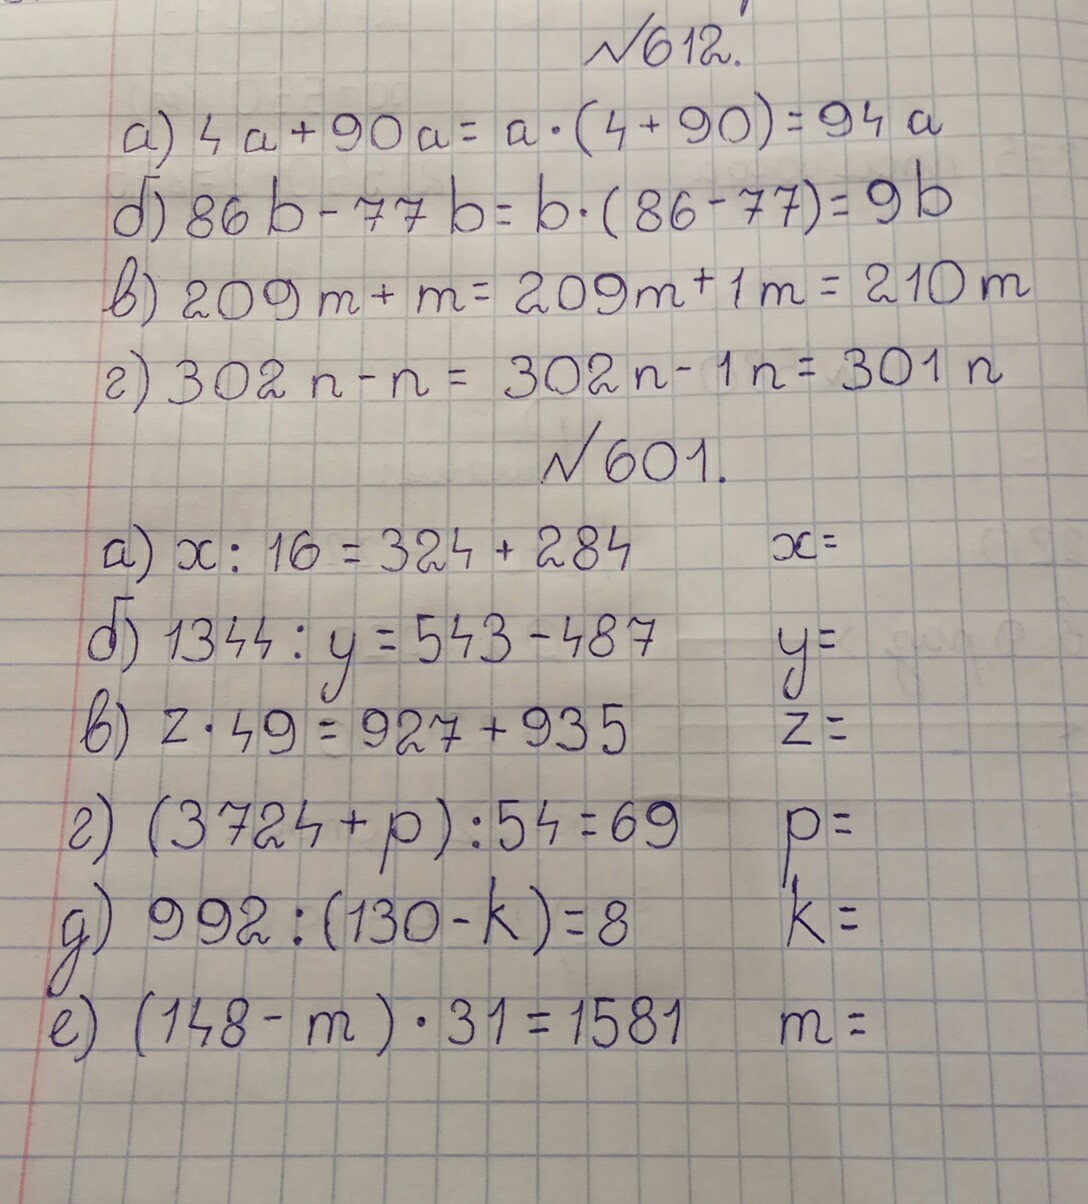 №612.
а) 4a+90a=a·(4+90)=94a
б) 86b-77b=b·(86-77)=9b
в) 209m+m=209m+1m=210m
г) 302n-n=302n-1n=301n
№601.
а) x:16=324+284 x=
б) 1344:y=543-487 y=
в) z·49=927+935 z=
г) (3724+p):54=69 p=
д) 992:(130-k)=8 k=
е) (148-m)·31=1581 m=